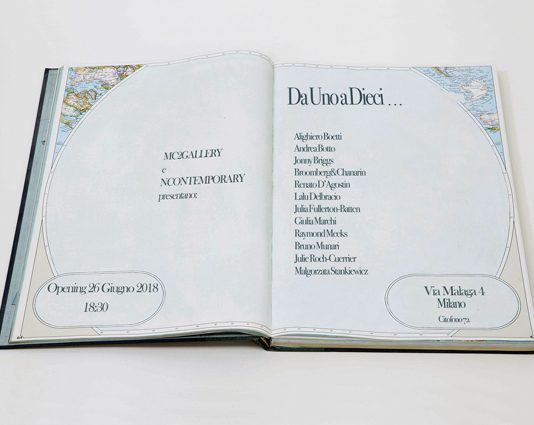 MC2GALLERY
e
NCONTEMPORARY
presentano:
Opening 26 Giugno 2018
18:30
Da Uno a Dieci ...
Alighiero Boetti
Andrea Botto
Jonny Briggs
Broomberg&Chanarin
Renato D'Agostin
Lalu Delbracio
Julia Fullerton-Batten
Giulia Marchi
Raymond Meeks
Bruno Munari
Julie Roch-Cuerrier
Malgorzata Stankiewicz
Via Malaga 4
Milano
Citofono 72